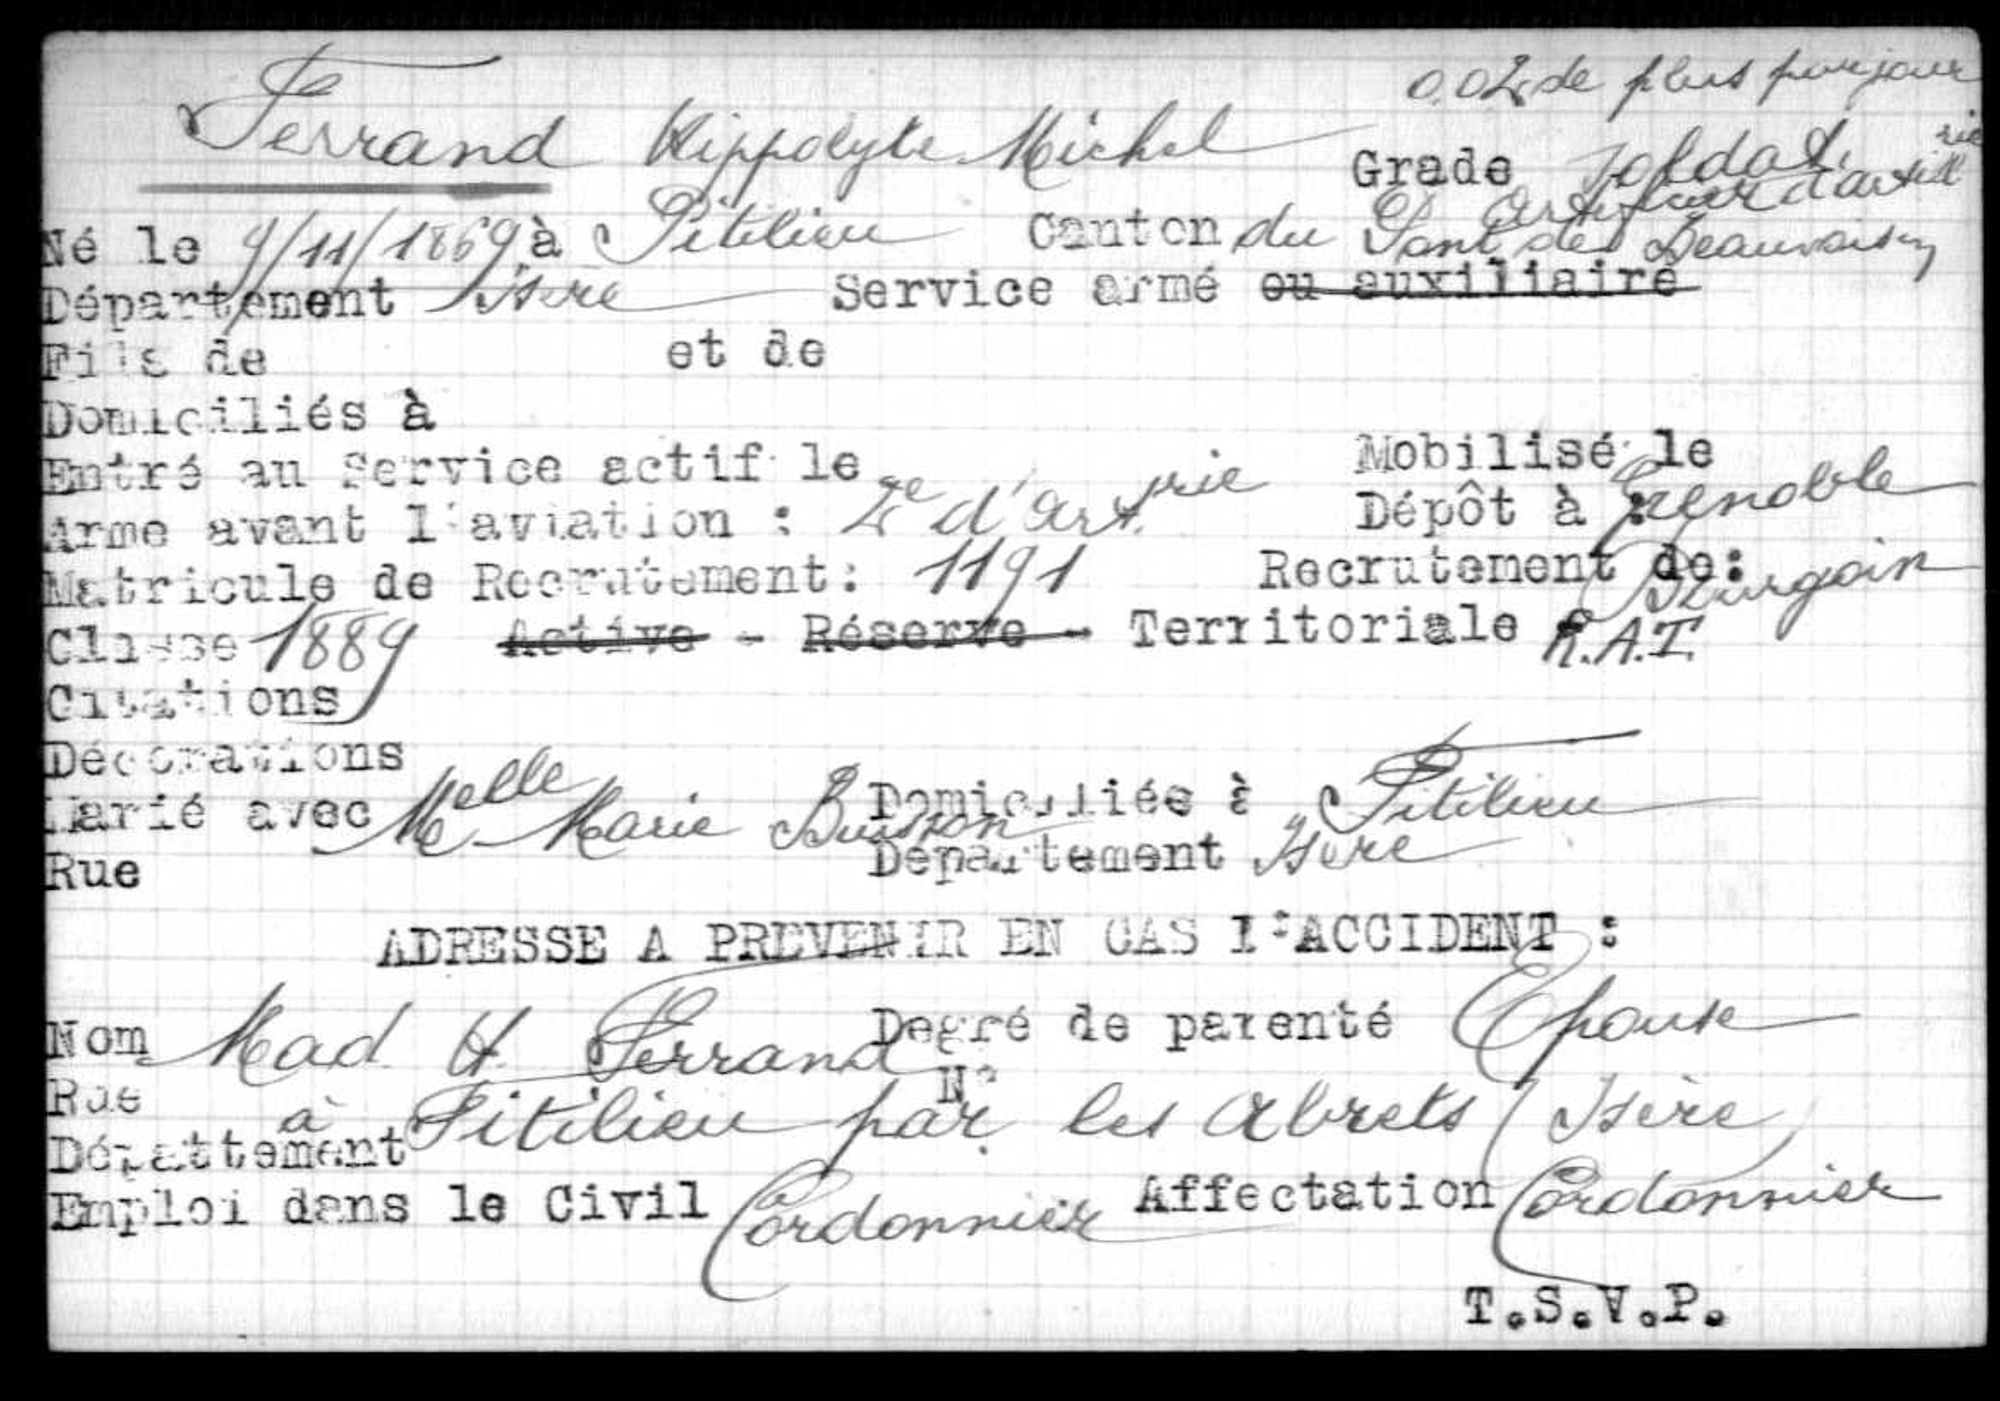 0.02 de plus par jour
Ferrand Hippolyte Michel Grade Soldat
et Artificier d'artillrie
Né le 9/11/1869 à Pitilieu Canton du Pont de Beauvoisin
Département Isère Service armé ou auxiliaire
Fils de et de
Domiciliés à
Entré au Service actif le Mobilisé le
Arme avant l'aviation : 2e d'art.rie Dépôt à : Grenoble
Matricule de Recrutement: 1191 Recrutement de: Bourgoin
Classe 1889 Active - Réserve - Territoriale R.A.T.
Citations
Décorations
Marié avec Melle Marie Buisson Domiciliée à Pitilieu
Rue Département Isère
ADRESSE A PREVENIR EN CAS D'ACCIDENT :
Nom Mad H. Ferrand Degré de parenté Epouse
Rue N°
à Pitilieu par les Abrets (Isère)
Dépattement
Emploi dans le Civil Cordonnier Affectation Cordonnier
T.S.V.P.